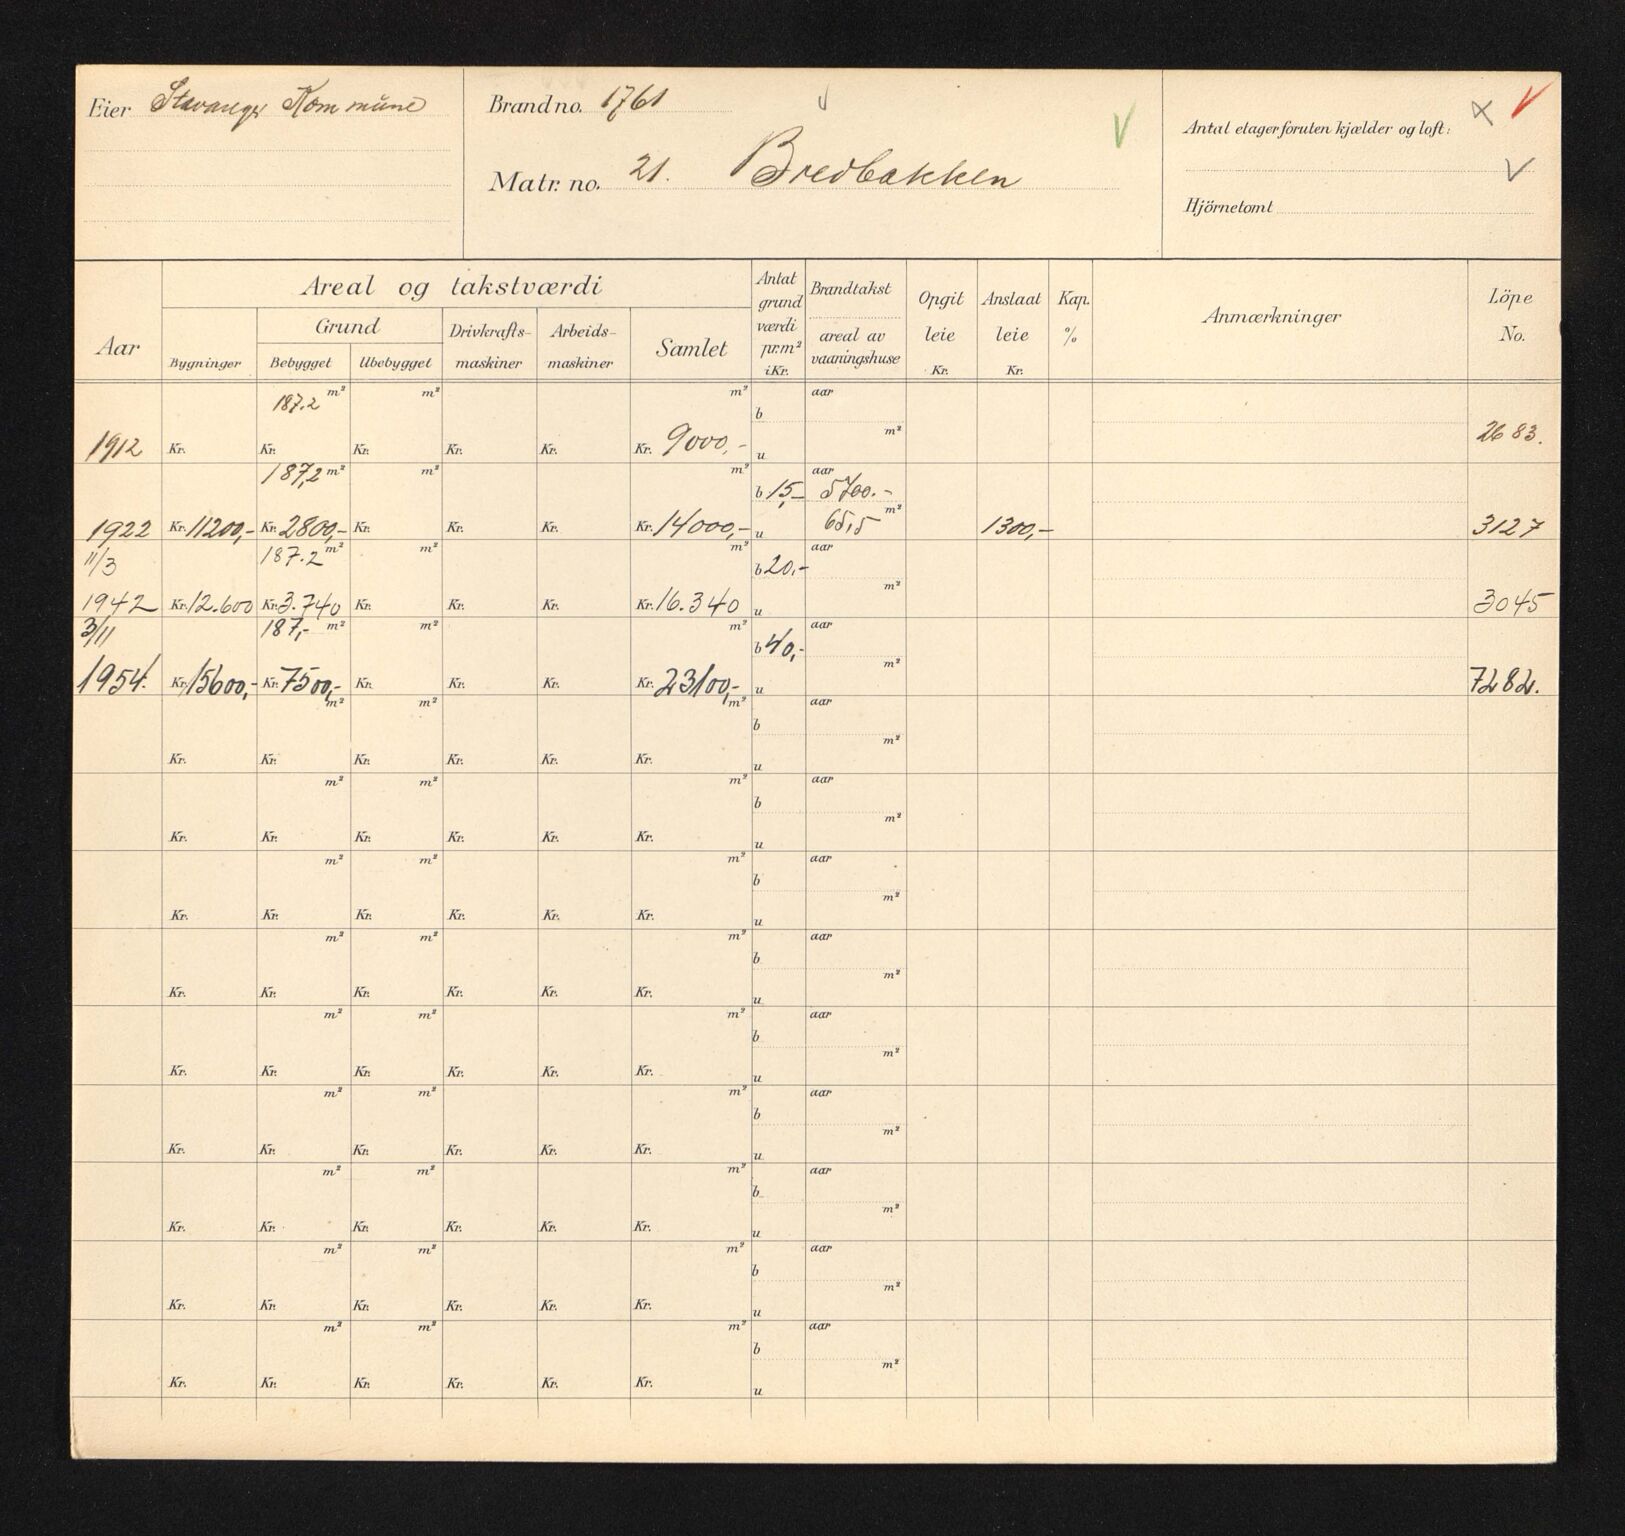 Eier Stavanger Kommune
Brand no. 1761
Matr. no. 21. Bredbakken
Antal etager foruten kjælder og loft:
Hjörnetomt
Aar
Areal og takstværdi
Bygninger
Grund
Bebygget Ubebygget
Drivkrafts-
maskiner
Arbeids-
maskiner
Samlet
Antat
grund
værdi
pr. m²
i Kr.
Brandtakst
areal av
vaaningshuse
Opgit
leie
Kr.
Anslaat
leie
Kr.
Kap.
%
Anmærkninger
Löpe
No.
187.2 m² m² m² aar
b
m²
1912 Kr. Kr. Kr. Kr. Kr. Kr. 9000,- u 2683.
187,2 m² m² m² aar
b 15,- 5700.-
m²
1922 Kr. 11200,- Kr. 2800,- Kr. Kr. Kr. Kr. 14000,- u 65,5 1300,- 3127
11/3 187.2 m² m² m² aar
b 20.-
m²
1942 Kr. 12.600 Kr. 3.740 Kr. Kr. Kr. Kr. 16.340 u 3045
3/11 187,- m² m² m² aar
b 40,-
m²
1954. Kr. 15600,- Kr. 7500,- Kr. Kr. Kr. Kr. 23100,- u 7282.
m² m² m² aar
b
m²
Kr. Kr. Kr. Kr. Kr. Kr. u
m² m² m² aar
b
m²
Kr. Kr. Kr. Kr. Kr. Kr. u
m² m² m² aar
b
m²
Kr. Kr. Kr. Kr. Kr. Kr. u
m² m² m² aar
b
m²
Kr. Kr. Kr. Kr. Kr. Kr. u
m² m² m² aar
b
m²
Kr. Kr. Kr. Kr. Kr. Kr. u
m² m² m² aar
b
m²
Kr. Kr. Kr. Kr. Kr. Kr. u
m² m² m² aar
b
m²
Kr. Kr. Kr. Kr. Kr. Kr. u
m² m² m² aar
b
m²
Kr. Kr. Kr. Kr. Kr. Kr. u
m² m² m² aar
b
m²
Kr. Kr. Kr. Kr. Kr. Kr. u